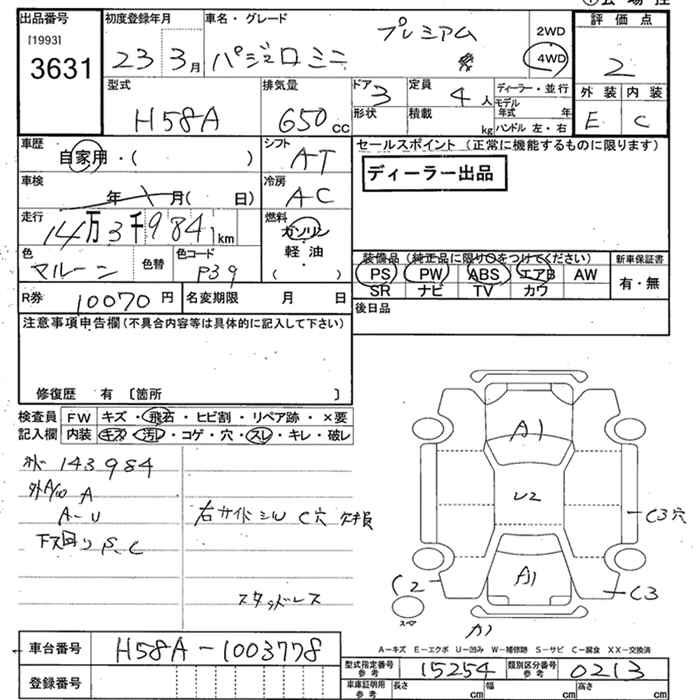 出品番号 初度登録年月 車名・グレード 評価点
[1993] 3631 23 3月 パジェロミニ プレミアム 2WD 4WD 2
型式 排気量 ドア 3 定員 4人 ディーラー・並行 外装 内装
H58A 650cc 形状 積載 kg モデル年式 年 ハンドル 左・右 E C
車歴 自家用・( ) シフト AT セールスポイント (正常に機能するものに限ります)
車検 年 月( 日) 冷房 AC ディーラー出品
走行 14万3千984km 燃料 ガソリン 軽・油 ( )
色 マルーン 色替 色コード P39 装備品(純正品に限り○をつけてください) 新車保証書
PS PW ABS エアB AW 有・無
SR ナビ TV カワ
R券 10070円 名変期限 月 日
後日品
注意事項申告欄(不具合内容等は具体的に記入して下さい)
修復歴 有 〔箇所 〕
検査員 FW キズ・飛石・ヒビ割・リペア跡・×要
記入欄 内装 キズ・汚レ・コゲ・穴・スレ・キレ・破レ
143984
外A10 A
A-U
右サイドシル C穴 欠損
下ス回り P.S.C
スタッドレス
A1
U2
A1
C3穴
C2
C3
スマ
カ1
A-キズ E-エクボ U-凹み W-補修跡 S-サビ C-腐食 XX-交換済
車台番号 H58A-1003778
型式指定番号 参考 15254 類別区分番号 参考 0213
登録番号 車庫証明用 参考 長さ cm 幅 cm 高さ cm